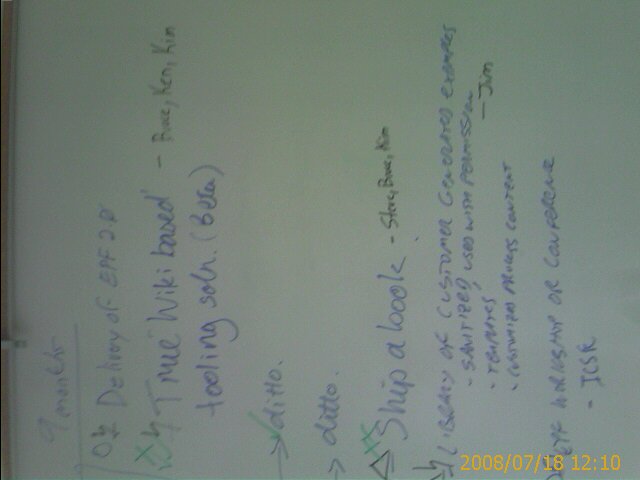 9 months
Delivery of EPF 2.0
"True" Wiki based - Bruce, Ken, Kim
tooling soln. (Beta)
→ ditto.
→ ditto.
Ship a book - Steve, Bruce, Kim
LIBRARY OF CUSTOMER GENERATED EXAMPLES
- SANITIZED, USED WITH PERMISSION
- TEMPLATES - Jim
- CUSTOMIZED PROCESS CONTENT
EPF WORKSHOP OR CONFERENCE
- ICSR
2008/07/18 12:10